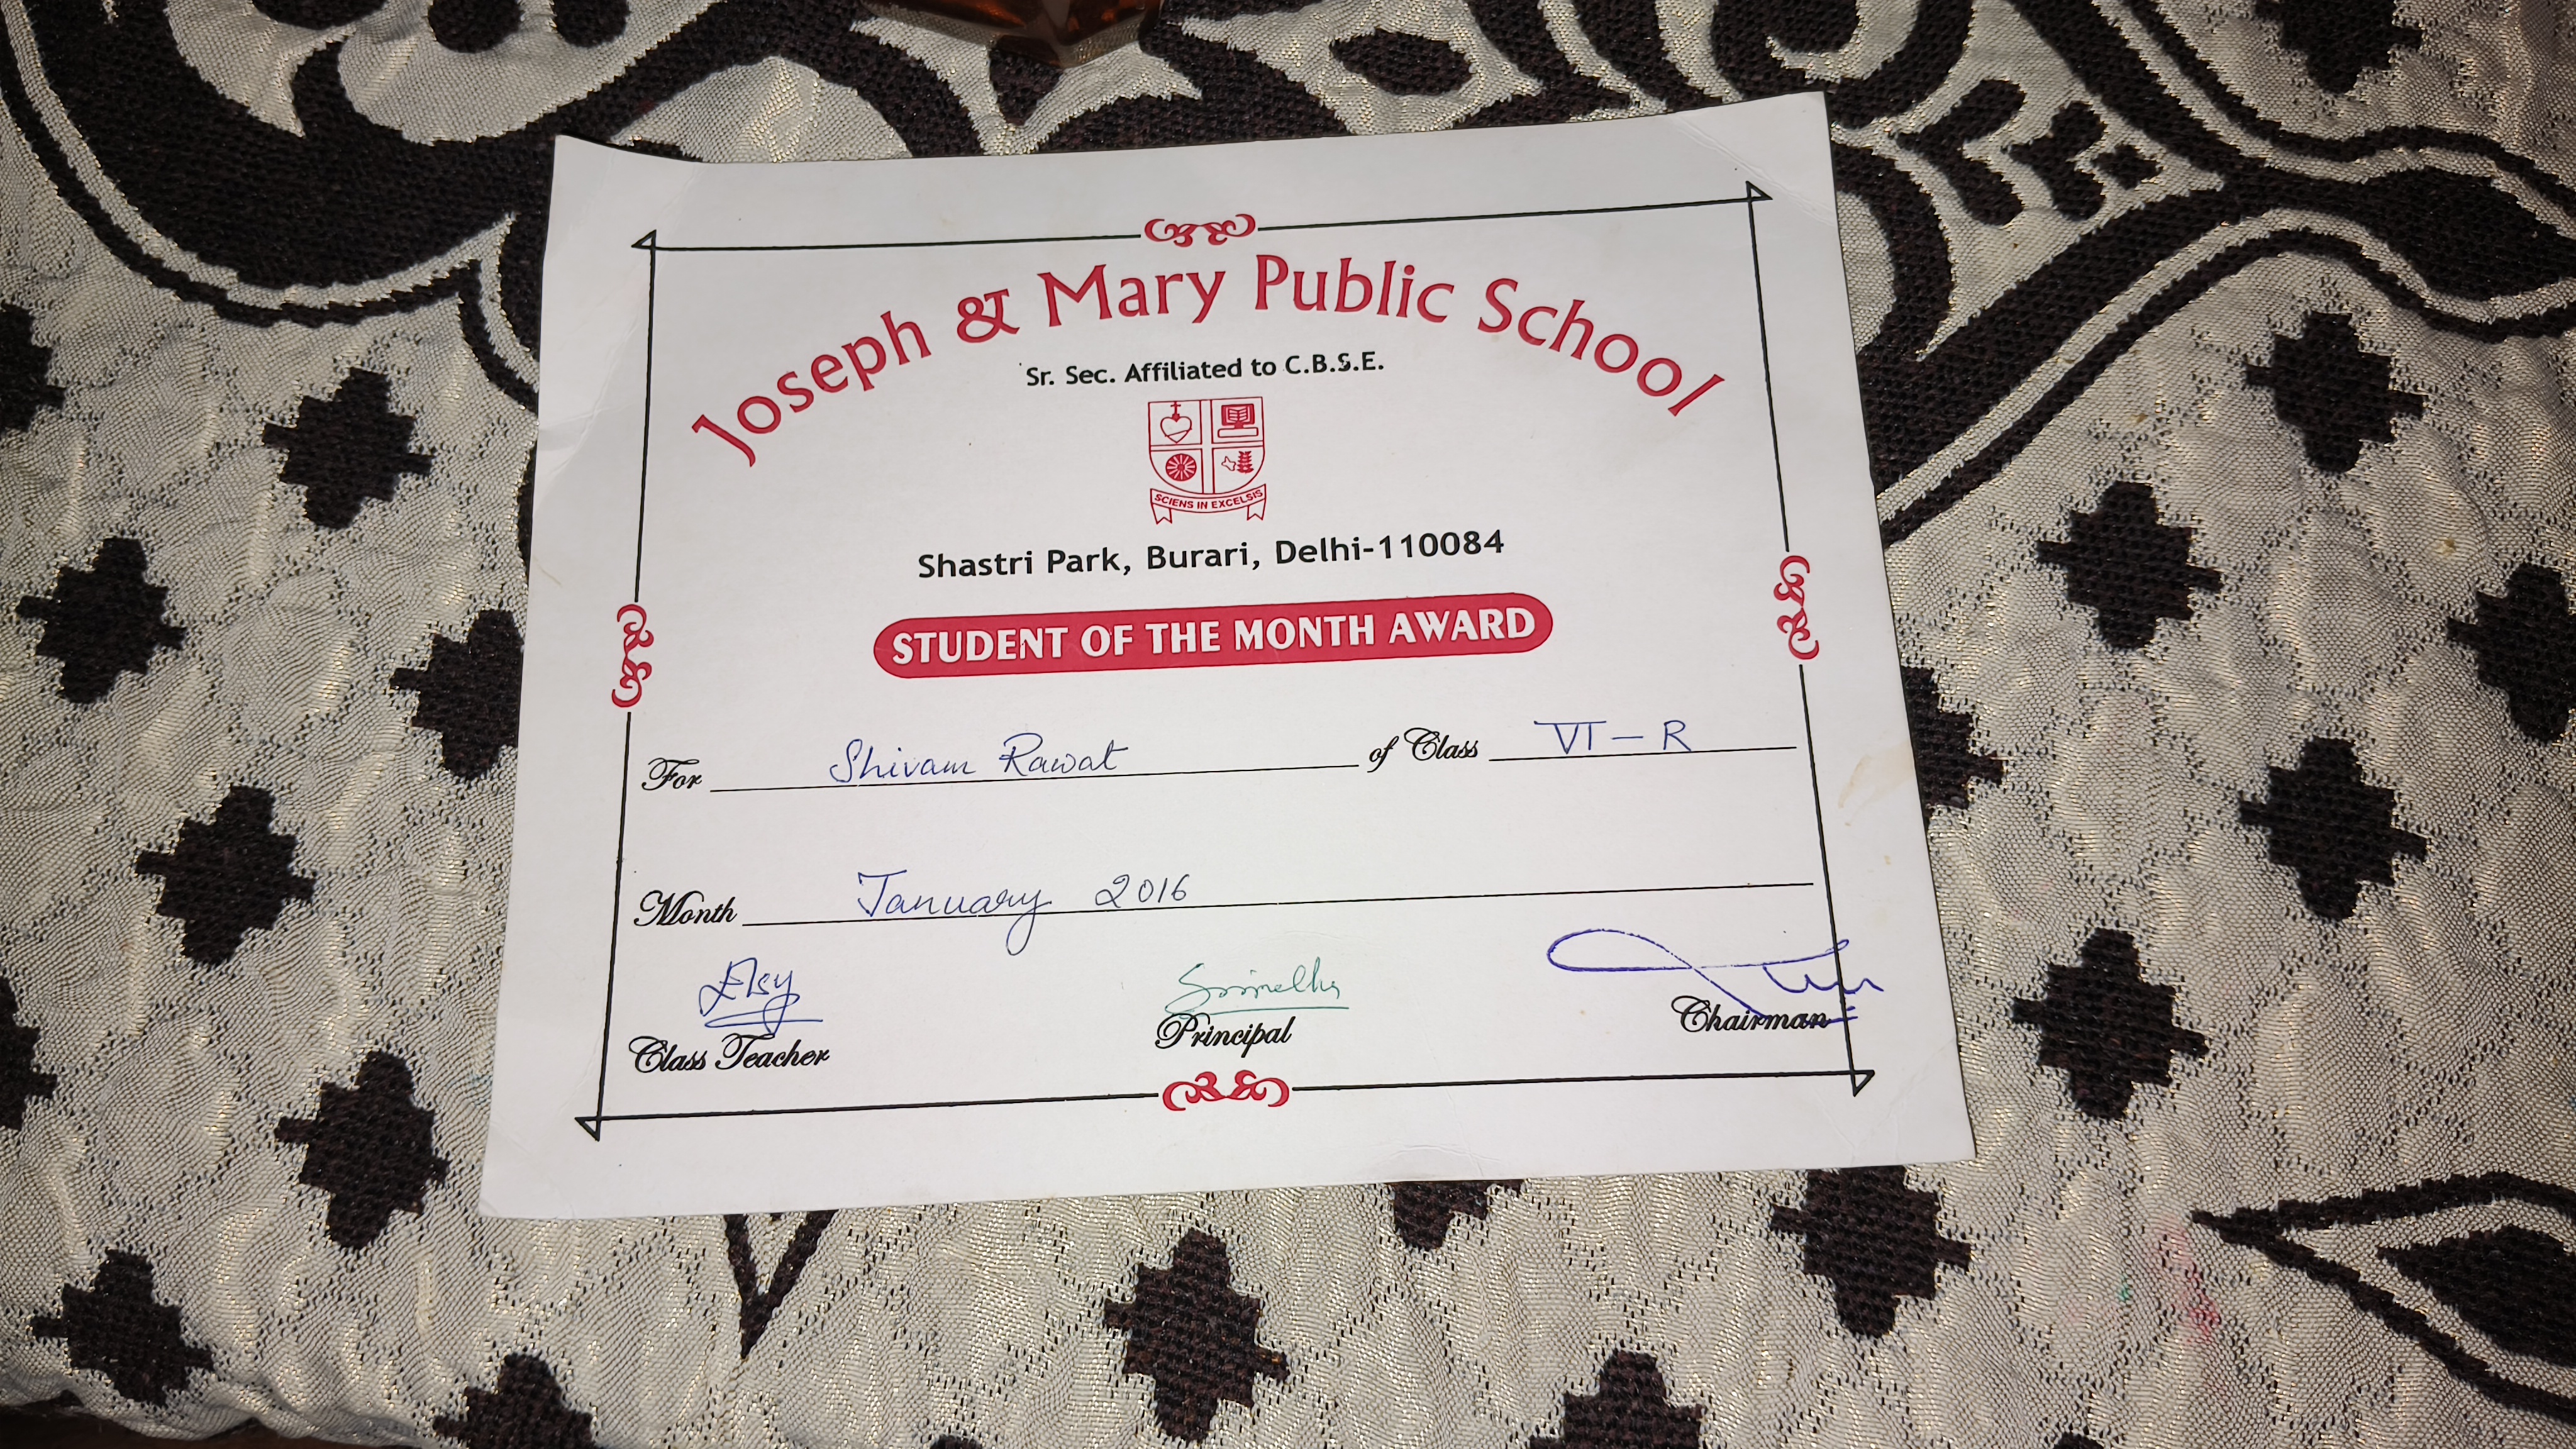 Joseph & Mary Public School
Sr. Sec. Affiliated to C.B.S.E.
SCIENS IN EXCELSIS
Shastri Park, Burari, Delhi-110084
STUDENT OF THE MONTH AWARD
For Shivam Rawat of Class VI - R
Month January 2016
Elsy
Class Teacher Principal Chairman